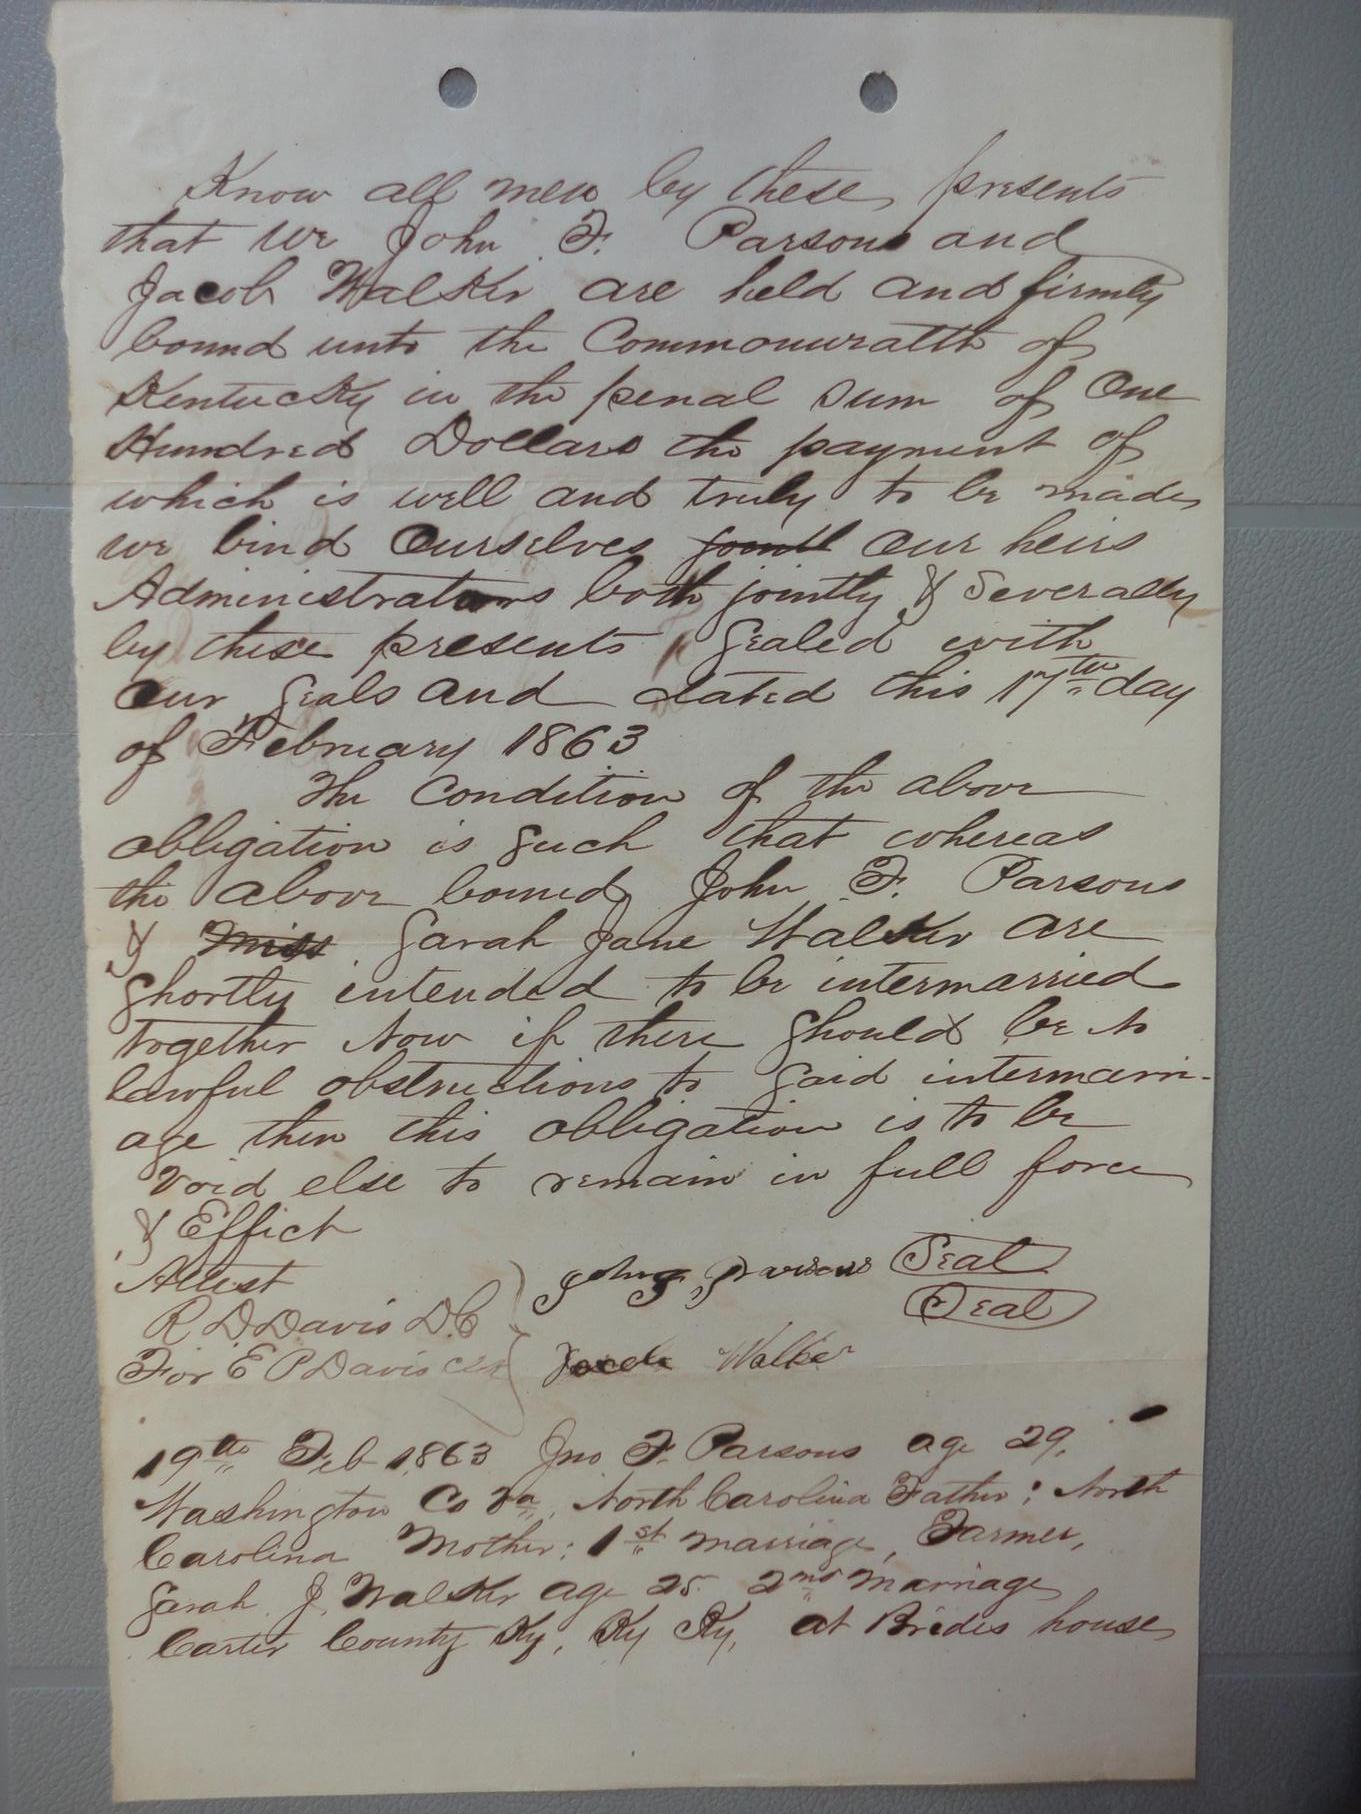 Know all men by these presents
that we John F. Parsons and
Jacob Walker are held and firmly
bound unto the Commonwealth of
Kentucky in the penal sum of One
Hundred Dollars the payment of
which is well and truly to be made
we bind Ourselves jointl our heirs
Administrators both jointly & Severally
by these presents, Sealed with
Our Seals and dated this 17th day
of February 1863
The Condition of the above
obligation is Such that whereas
the above bound John F. Parsons
& Miss Sarah Jane Walker are
Shortly intended to be intermarried
together Now if there Should be no
lawful obstructions to Said intermarri-
age then this obligation is to be
void else to remain in full force
& Effect
Attest
R D Davis D.C
For E P Davis Clk
John F Parsons Seal
Seal
Jacob Walker
19th Feb 1863 Jno F. Parsons age 29,
Washington Co Va, North Carolina Father; North
Carolina Mother; 1st marriage, Farmer,
Sarah J. Walker age 25 2nd Marriage
Carter County Ky, Ky Ky, at Brides house